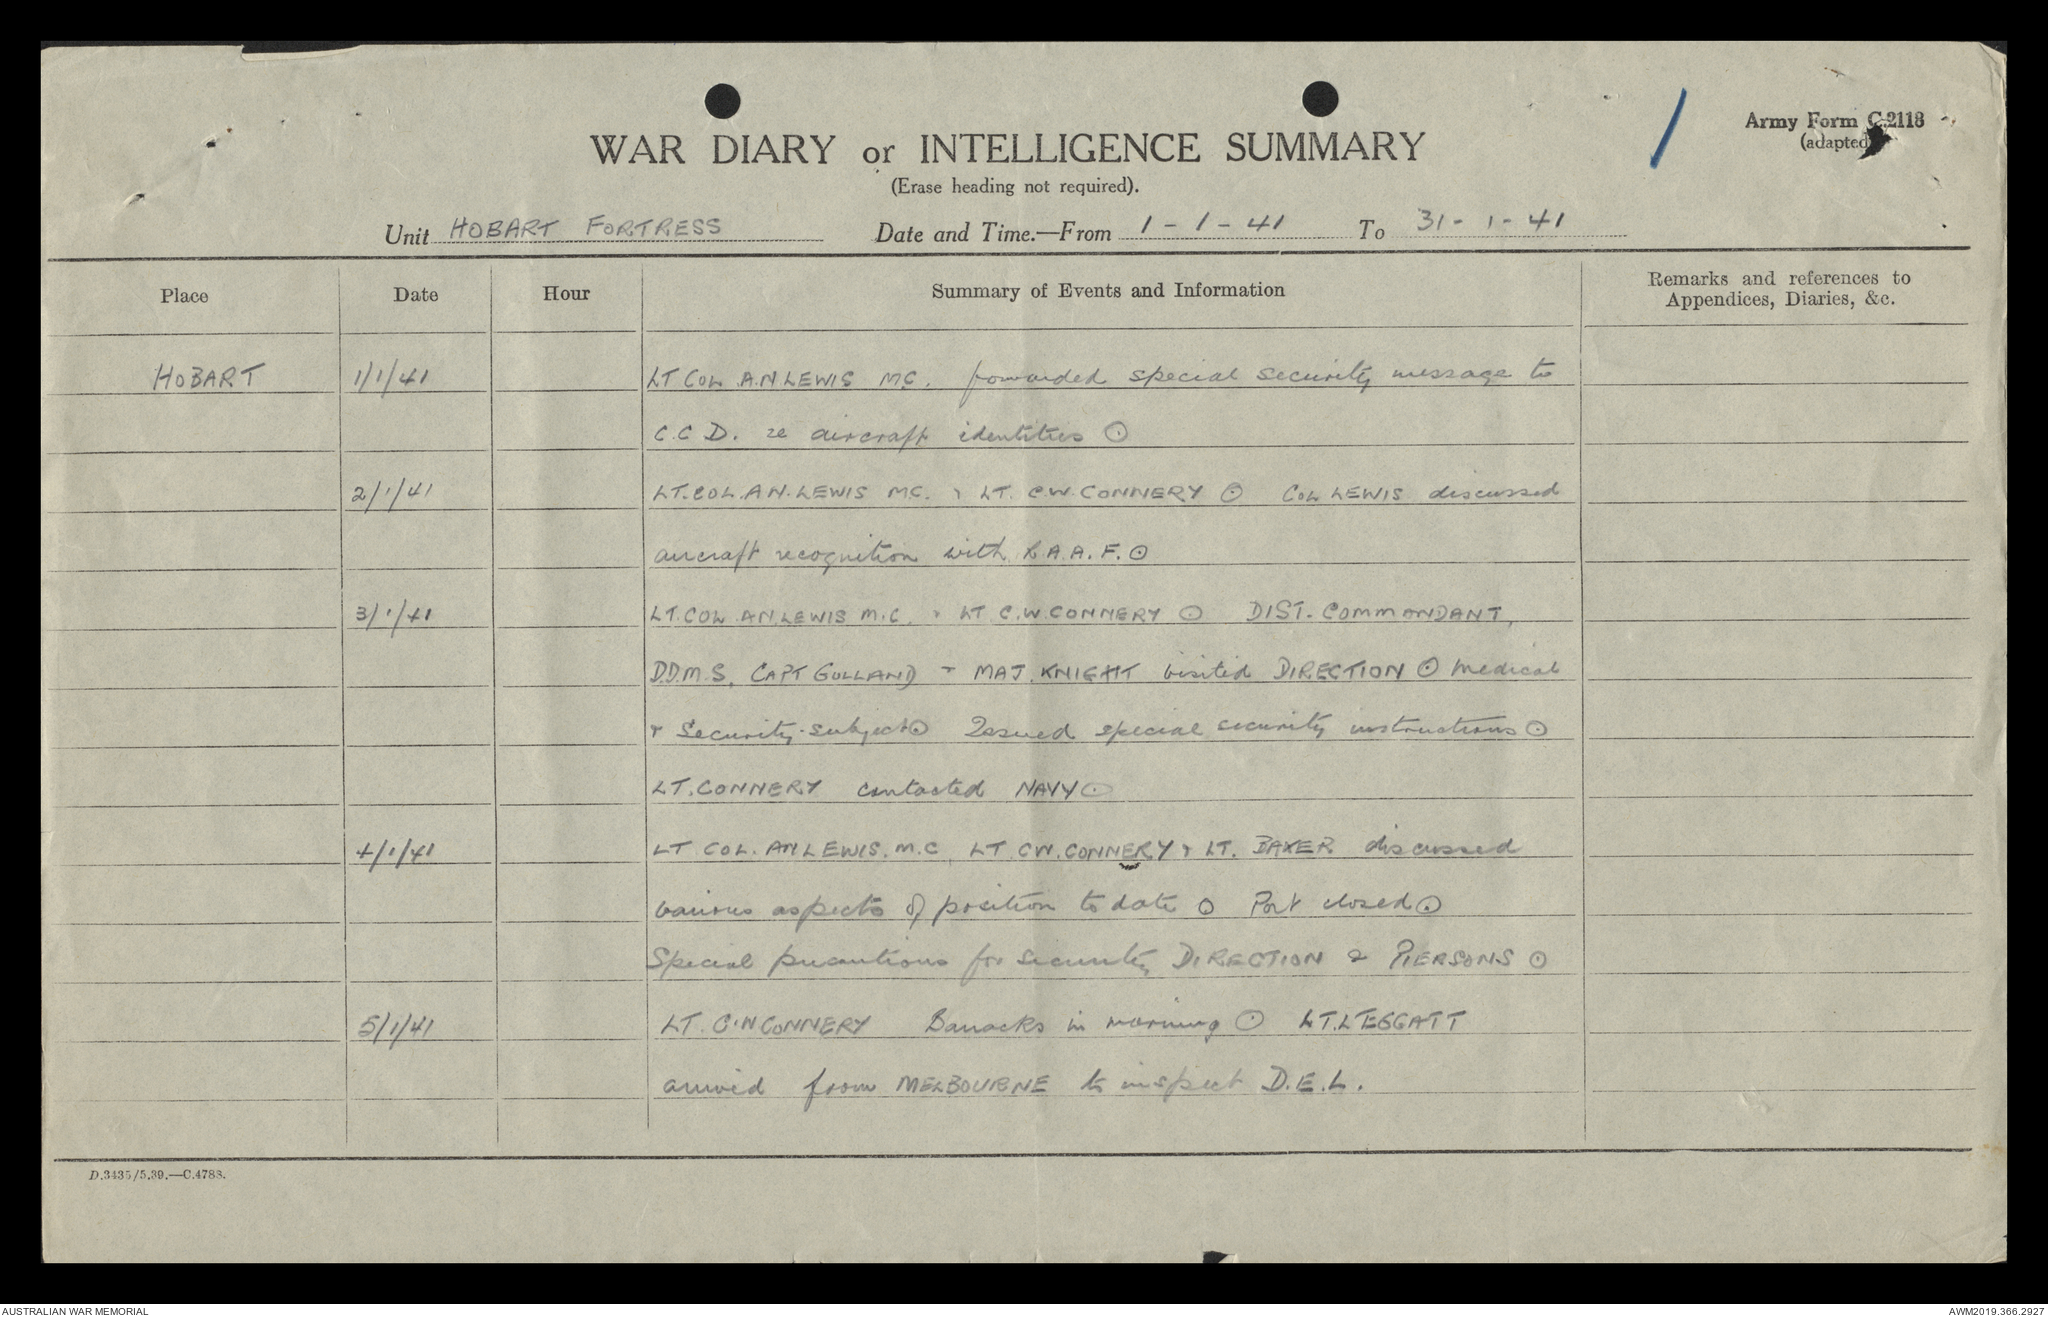 1
Army Form C.2118
(adapted)
WAR DIARY or INTELLIGENCE SUMMARY
(Erase heading not required).
Unit HOBART FORTRESS Date and Time.—From 1-1-41 To 31-1-41
Place Date Hour Summary of Events and Information Remarks and references to
Appendices, Diaries, &c.
HOBART 1/1/41 LT COL A.N LEWIS M.C. forwarded special security message to
C.C D. re aircraft identities ⊙
2/1/41 LT. COL. A N. LEWIS M.C. & LT. C.W. CONNERY ⊙ COL LEWIS discussed
aircraft recognition with R.A.A.F. ⊙
3/1/41 LT. COL. A.N. LEWIS M.C. & LT C.W. CONNERY ⊙ DIST. COMMANDANT,
D.D.M.S, CAPT GOLLAND & MAJ. KNIGHT visited DIRECTION ⊙ Medical
& Security subject ⊙ Issued special security instructions ⊙
LT. CONNERY contacted NAVY ⊙
4/1/41 LT COL. A.N LEWIS. M.C, LT CW. CONNERY & LT. BAKER discussed
various aspects of position to date ⊙ Port closed ⊙
Special precautions for security DIRECTION & PIERSONS ⊙
5/1/41 LT. C.W CONNERY Barracks in morning ⊙ LT. LEGGATT
arrived from MELBOURNE to inspect D.E.L.
D.3435/5.39.—C.4788.
AUSTRALIAN WAR MEMORIAL
AWM2019.366.2927